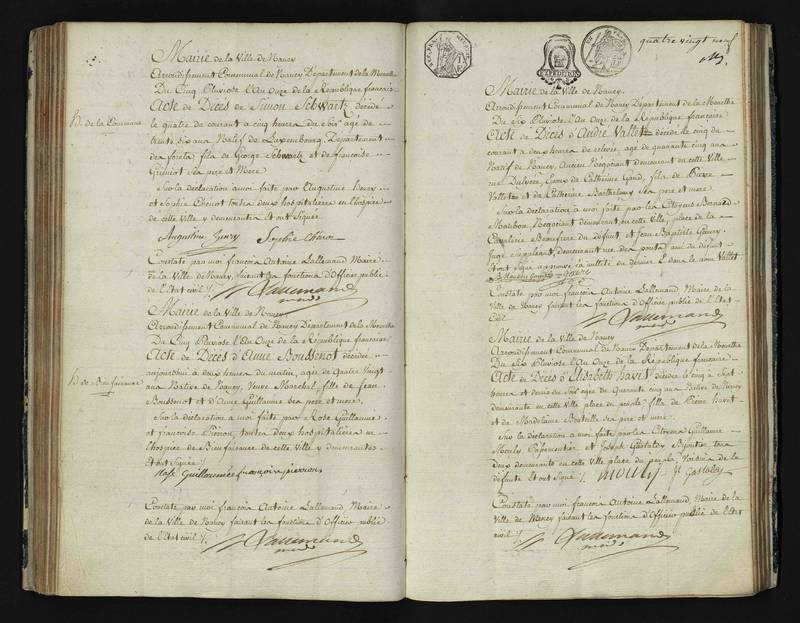 Mairie de la Ville de Nancy
Arrondissement Communal de Nancy Département de la Meurthe
Du Cinq Pluviose l'An Onze de la République française
Acte de Décès de Simon Schwartz décédé
H. de la Commune
le quatre du courant a cinq heures du Soir agé de
trente dix ans Natif de Luxembourg, Département
des forets, fils de George Schwartz et de françoise
ses pere et Mere
Sur la déclaration a moi faite par Augustine henry
et Sophie Chenot toutes deux hospitalieres en l'hospice
de cette Ville y demeurantes Et ont Signées
Augustine henry Sophie Chenot
Constaté par moi françois Antoine Lallemand Maire
de la Ville de Nancy, faisant les fonctions d'Officier public
de l'Etat civil /.
Lallemand
Maire
Mairie de la Ville de Nancy
Arrondissement Communal de Nancy Département de la Meurthe
Du Cinq Pluviose l'An Onze de la République française
Acte de Décès d'Anne Boussenot décédée
H. de Bienfaisance
aujourdhui a deux heures du matin, agée de Quatre Vingt
ans Native de Nancy, Veuve Marchal fille de Jean
Boussenot et d'Anne Guillaume ses pere et mere.
Sur la déclaration a moi faite par Rose Guillaumé
et françoise Pierson, toutes deux hospitalieres en
l'hospice de Bienfaisance de cette Ville y demeurantes
Et ont Signées
Rose Guillaumée françoise pierson
Constaté par moi françois Antoine Lallemand, Maire
de la Ville de Nancy faisant les fonctions d'Officier public
de l'Etat civil /.
Lallemand
Maire
quatre vingt neuf
Mairie de la Ville de Nancy.
Arrondissement Communal de Nancy Département de la Meurthe
Du Six Pluviose l'An Onze de la République françoise
Acte de Décès d'André Vallet décédé le cinq du
courant a deux heures de relevée, agé de quarante cinq ans
Natif de Nancy, Ancien Négociant demeurant en cette Ville
rue Epoux de Catherine fils de
et de Catherine Barthelemy Ses pere et mere
Sur la déclaration a moi faite par les Citoyens
Négociant demeurant en cette Ville, place de la
du défunt, et Jean Baptiste
Juge Suppléant, demeurant rue des ami du défunt
Et ont Signé approuvé la nullité du dernier E dans le nom Vallet
Constaté par moi françois Antoine Lallemand, Maire de la
Ville de Nancy faisant les fonctions d'Officier public de l'Etat
Civil
Lallemand
Maire
Mairie de la Ville de Nancy
Arrondissement Communal de Nancy Département de la Meurthe
Du Six Pluviose l'An Onze de la République francaise
Acte de Décès d'Elisabeth havet décédée le cinq a Sept
heures et demie du Soir agée de Quarante cinq ans Native de Nancy
demeurante en cette Ville place du peuple, fille de Pierre havet
et de Madelaine ses pere et mere.
Sur la déclaration a moi faite par les Citoyens Guillaume
Mouly et Joseph Bijoutier tous
deux demeurants en cette Ville place du peuple, Voisins de la
défunte et ont Signé /. mouly
Constaté par moi françois Antoine Lallemand, Maire de la
Ville de Nancy faisant les fonctions d'Officier public de l'Etat
civil /.
Lallemand
Maire